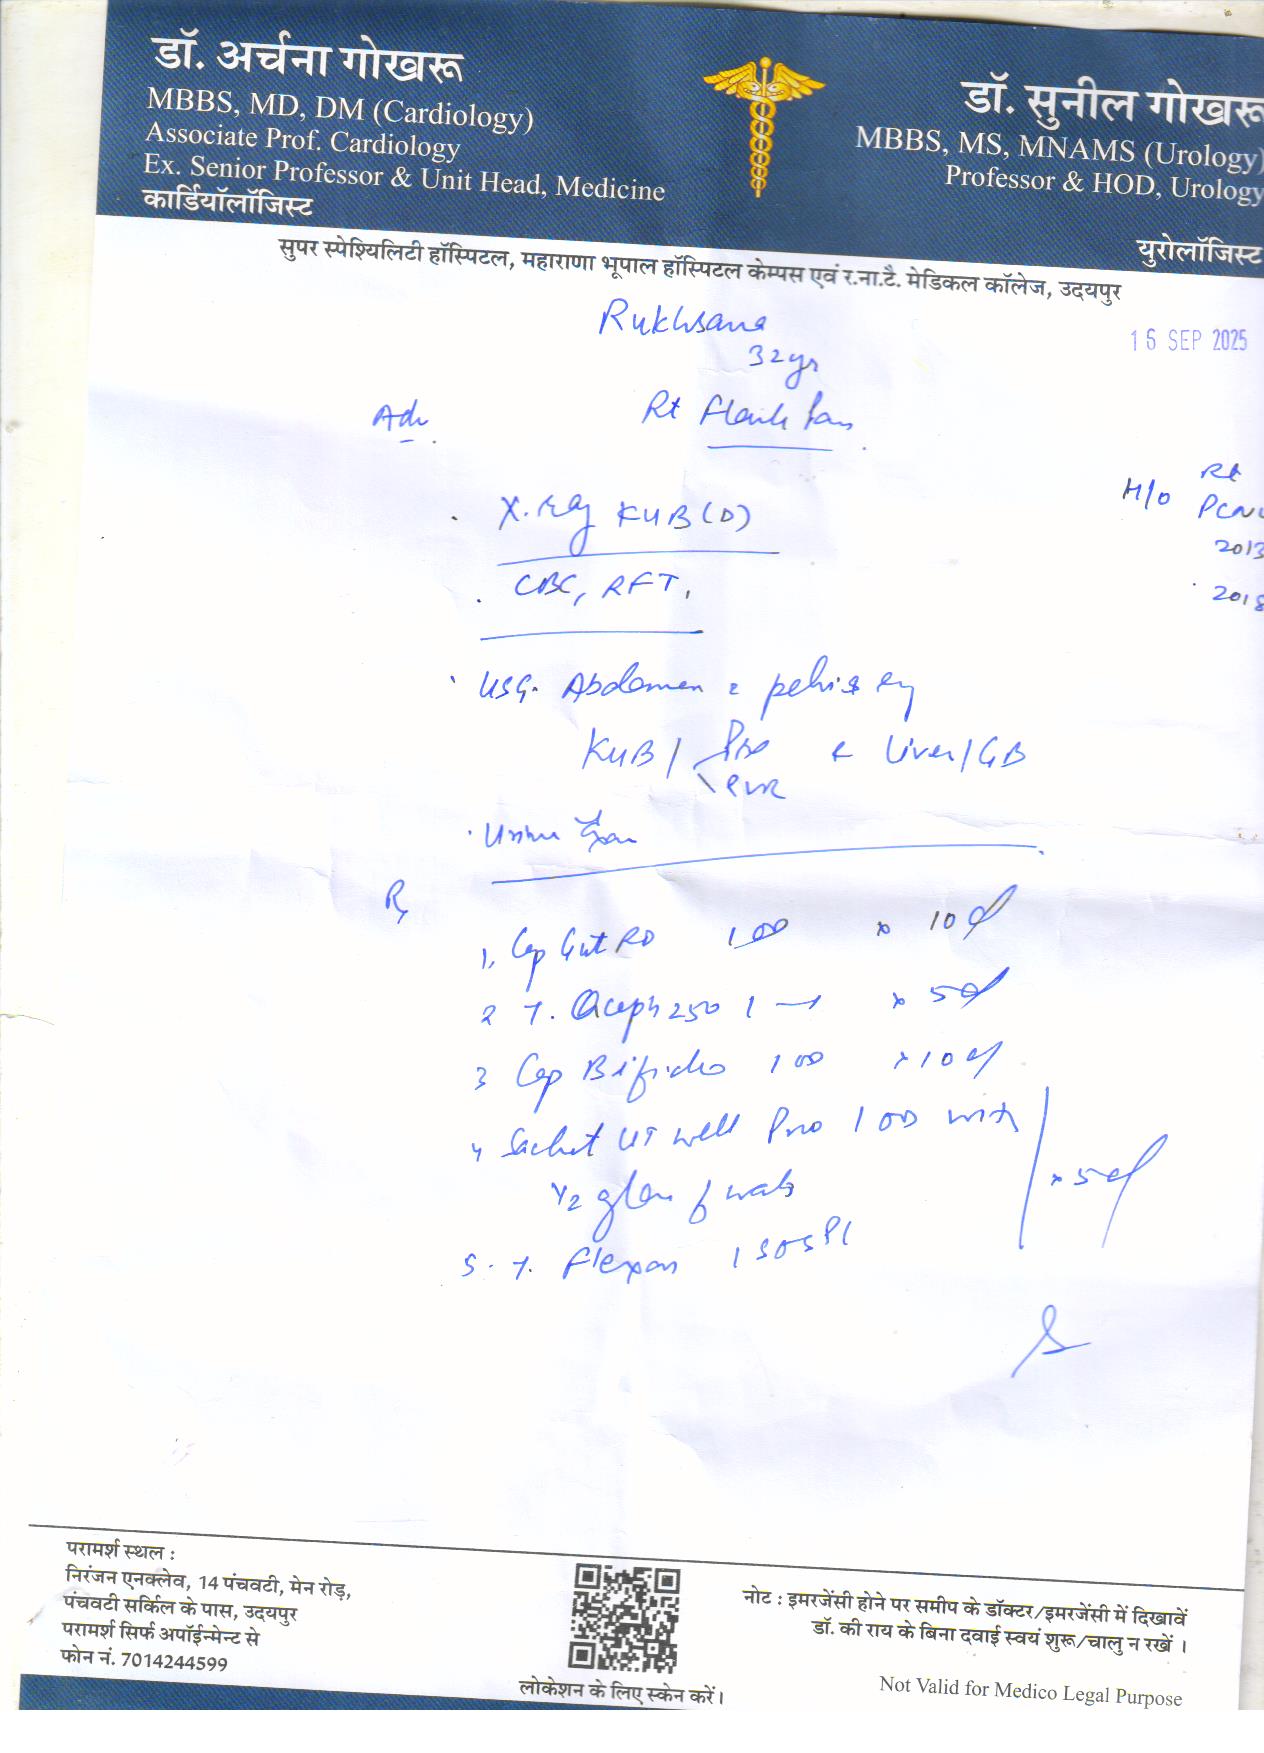 डॉ. अर्चना गोखरू
MBBS, MD, DM (Cardiology)
Associate Prof. Cardiology
Ex. Senior Professor & Unit Head, Medicine
कार्डियॉलॉजिस्ट
डॉ. सुनील गोखरू
MBBS, MS, MNAMS (Urology)
Professor & HOD, Urology
युरोलॉजिस्ट
सुपर स्पेश्यिलिटी हॉस्पिटल, महाराणा भूपाल हॉस्पिटल केम्पस एवं र.ना.टै. मेडिकल कॉलेज, उदयपुर
Rukhsana
32yr
16 SEP 2025
Adv
Rt Flank Pain
H/o Rt
PCN
2013
2018
X.ray KUB (D)
CBC, RFT,
USG. Abdomen & pelvis
KUB / Pre & Liver/GB
PVR
Urine
Rx
1. Cap Gut RD 1 OD x 10 d
2 T. 250 1 — 1 x 5d
3 Cap Bifido 1 OD x 10 d
4 Sachet UT well Pro 1 OD with
1/2 glass of water x 5d
5. T. Flexon 1 SOS
परामर्श स्थल :
निरंजन एनक्लेव, 14 पंचवटी, मेन रोड़,
पंचवटी सर्किल के पास, उदयपुर
परामर्श सिर्फ अपॉईन्मेन्ट से
फोन नं. 7014244599
लोकेशन के लिए स्केन करें।
नोट : इमरजेंसी होने पर समीप के डॉक्टर/इमरजेंसी में दिखावें
डॉ. की राय के बिना दवाई स्वयं शुरू/चालु न रखें ।
Not Valid for Medico Legal Purpose